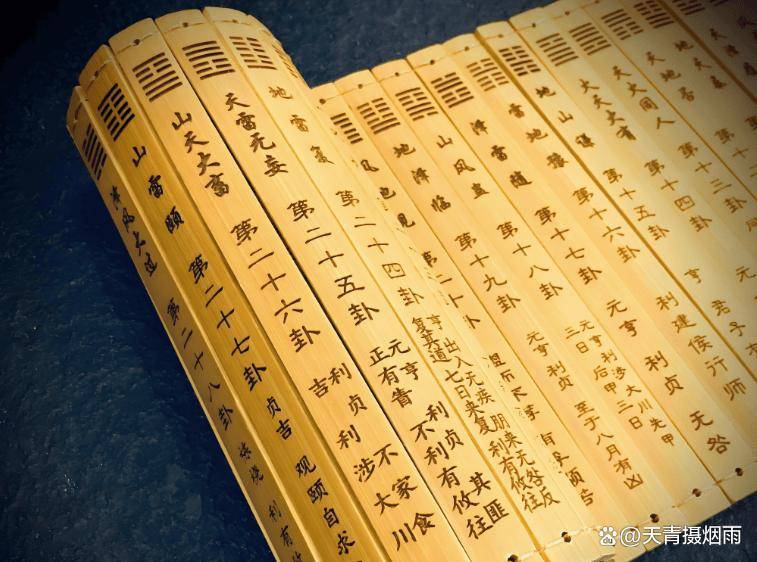 天火同人 第十三卦
火天大有 第十四卦 元
地山谦 第十五卦 亨 君子有
雷地豫 第十六卦 利建侯行师
泽雷随 第十七卦 元亨 利贞 无咎
山风蛊 第十八卦 元亨 利涉大川先甲
三日 后甲三日
地泽临 第十九卦 元亨利贞 至于八月有凶
第二十卦
地雷复 第二十四卦 亨 出入无疾 朋来无咎 反
复其道 七日来复 利有攸往
天雷无妄 第二十五卦 元亨 利贞 其匪
正有眚 不利有攸往
山天大畜 第二十六卦 利贞 不家食
吉 利涉大川
山雷颐 第二十七卦 贞吉 观颐自求
泽风大过 第二十八卦 栋桡 利有
天青摄烟雨